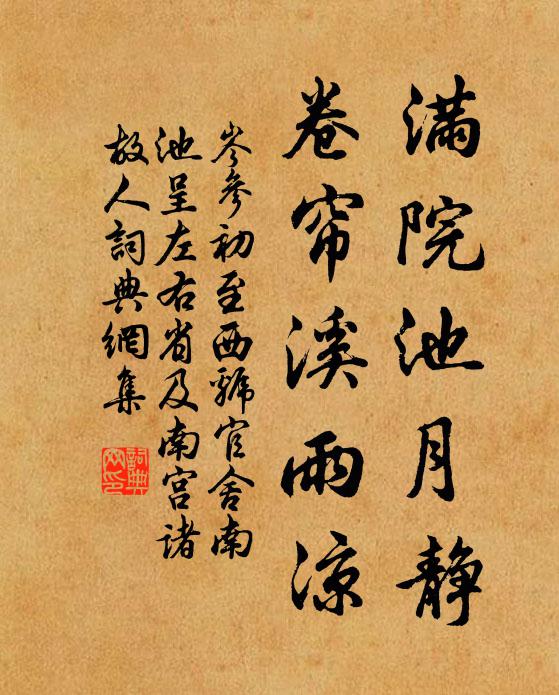 满院池月静
卷帘溪雨凉
岑参初至西虢官舍南
池呈左右省及南宫诸
故人詞典網集
詞典網印